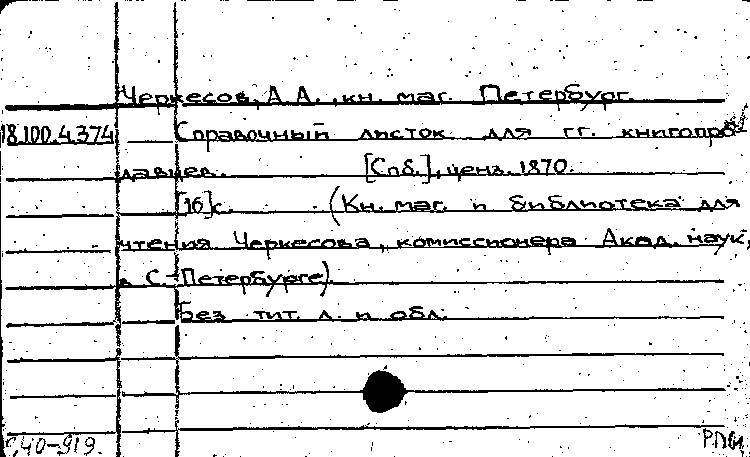 Черкесов, А.А., кн. маг. Петербург.
18.100.4.374 Справочный листок для гг. книгопро-
давцев. [Спб.], ценз. 1870.
[16]с. (Кн. маг. и библиотека для
чтения Черкесова, комиссионера Акад. наук,
в С.-Петербурге)
Без тит. л. и обл.
40-919.